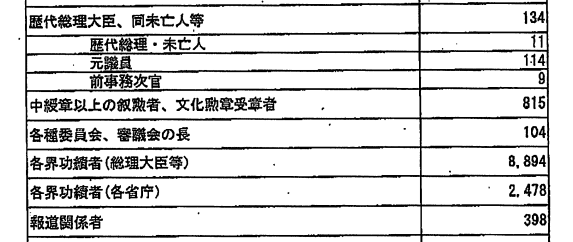 歴代総理大臣、同未亡人等 134
歴代総理・未亡人 11
元議員 114
前事務次官 9
中綬章以上の叙勲者、文化勲章受章者 815
各種委員会、審議会の長 104
各界功績者(総理大臣等) 8,894
各界功績者(各省庁) 2,478
報道関係者 398